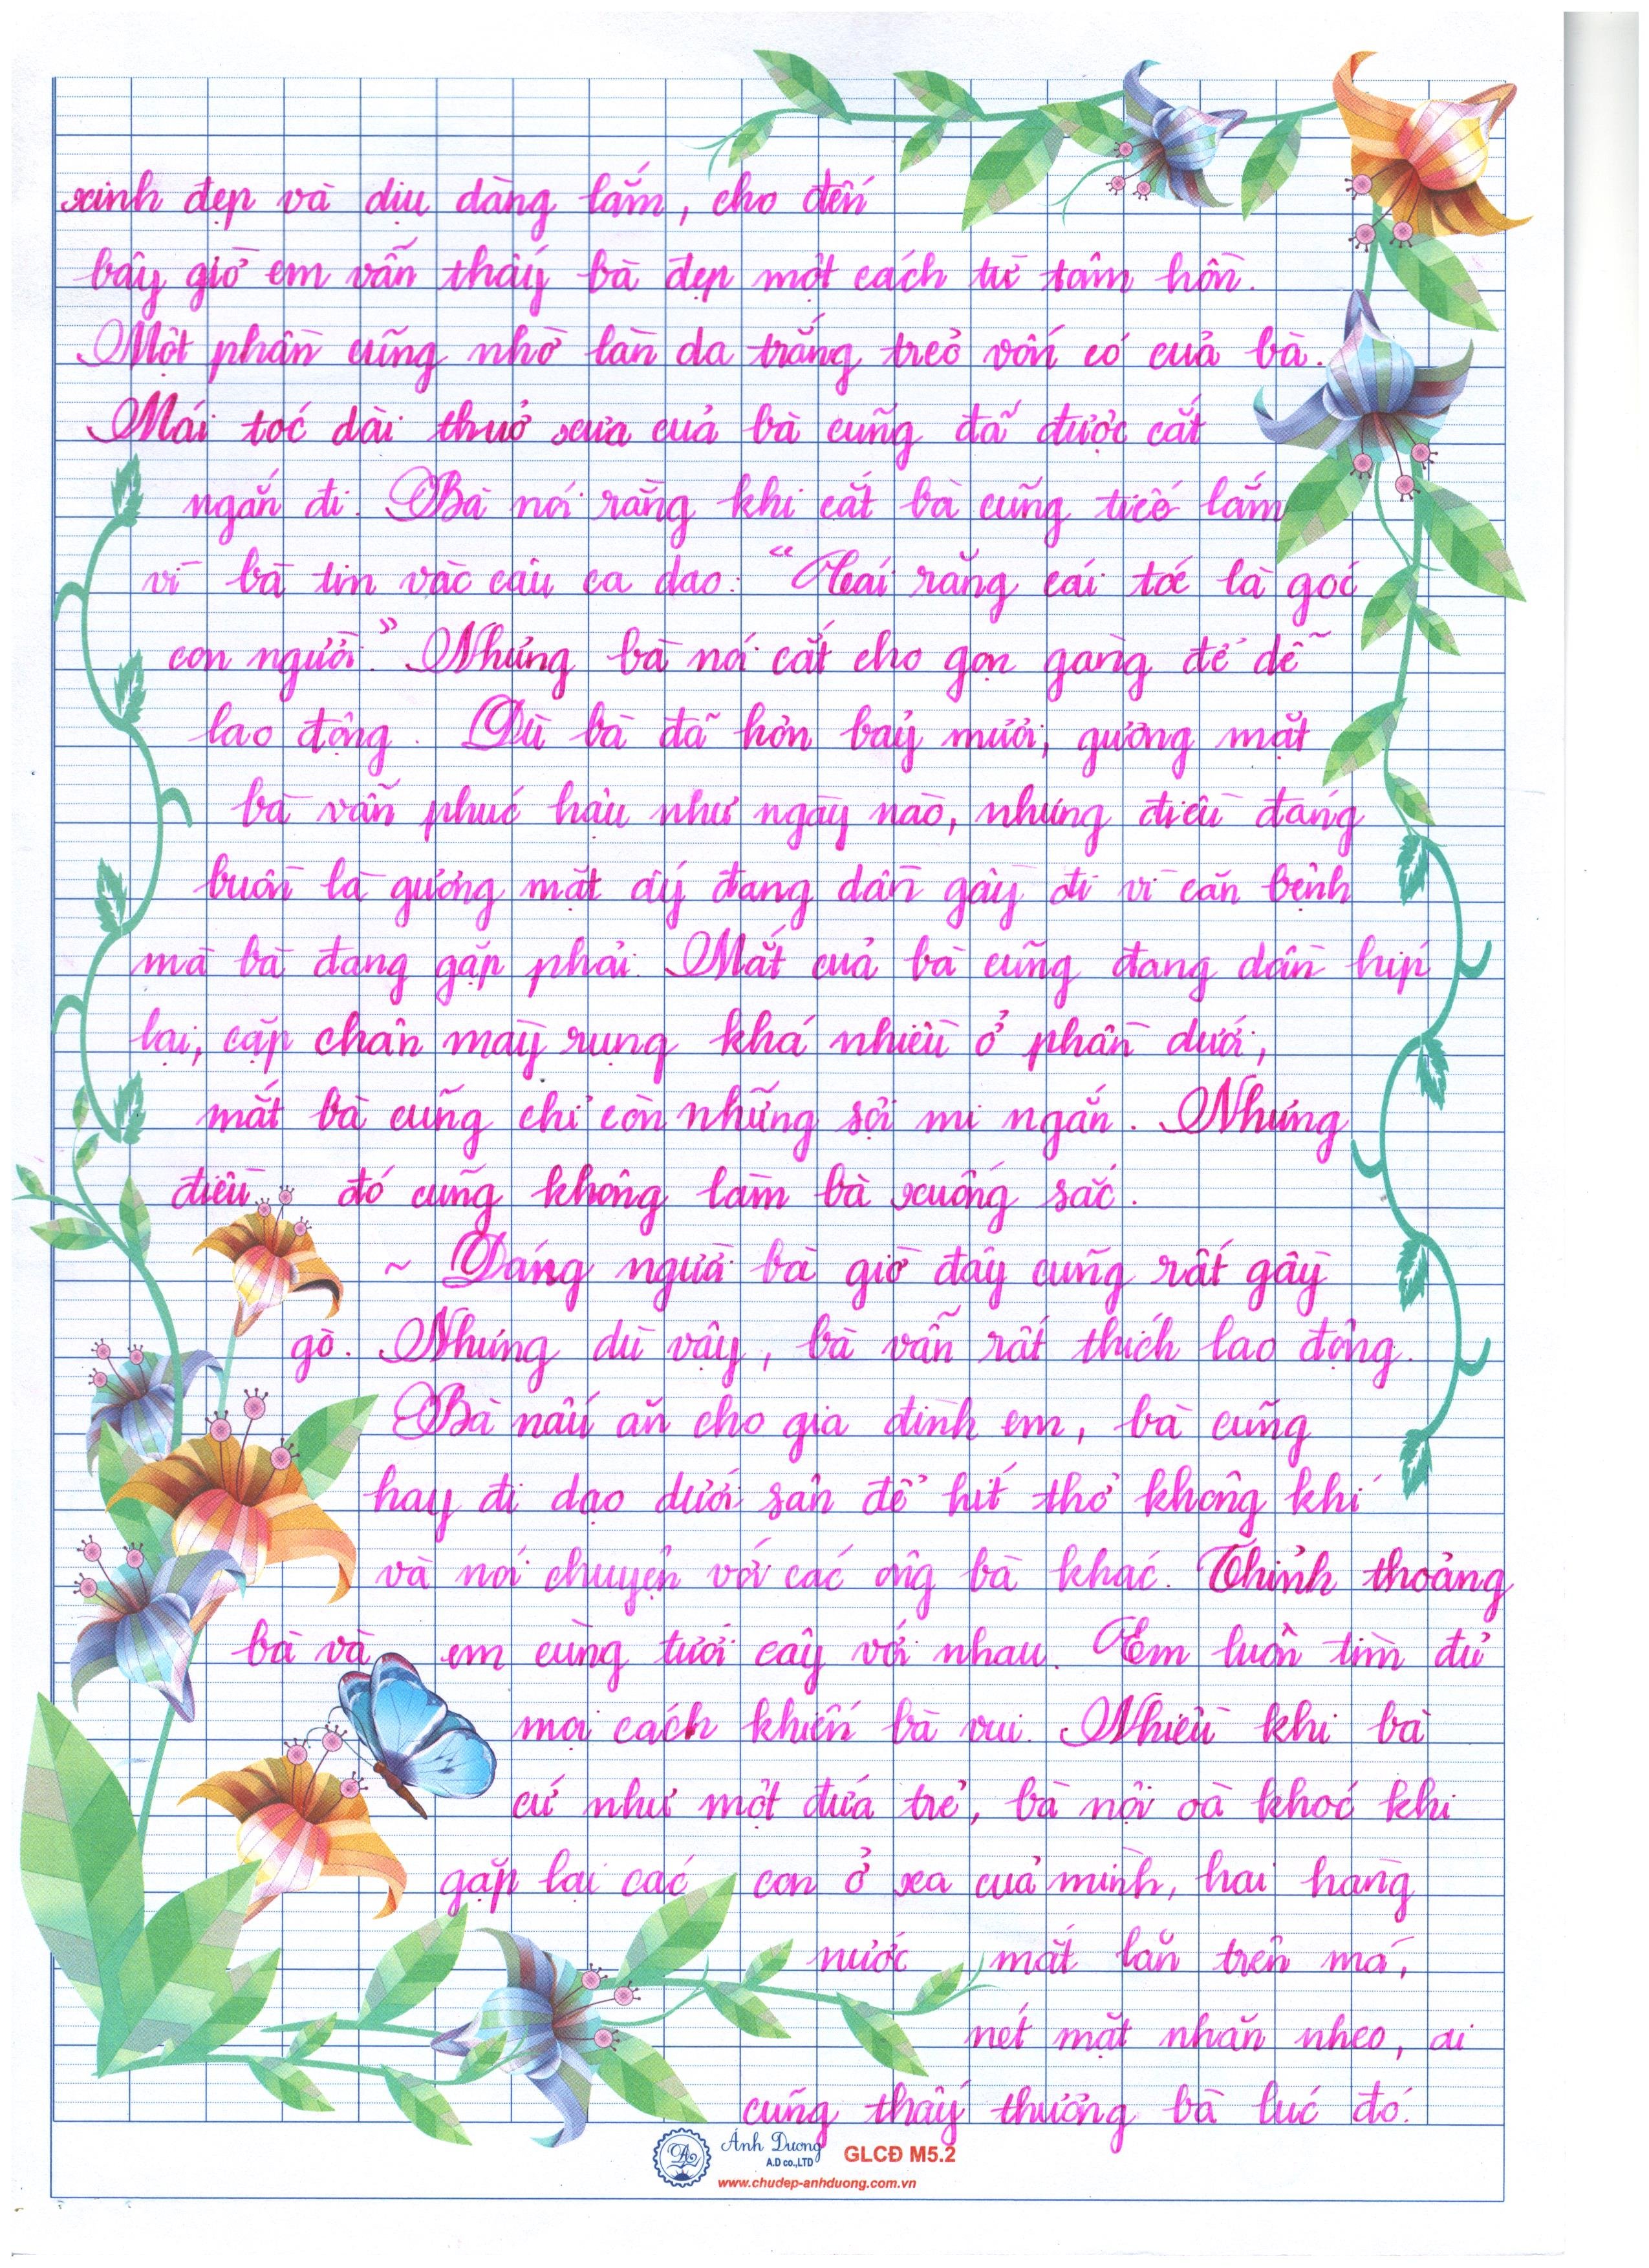 xinh đẹp và dịu dàng lắm, cho đến
bây giờ em vẫn thấy bà đẹp một cách từ tâm hồn.
Một phần cũng nhờ làn da trắng trẻo vốn có của bà.
Mái tóc dài thuở xưa của bà cũng đã được cắt
ngắn đi. Bà nói rằng khi cắt bà cũng tiếc lắm
vì bà tin vào câu ca dao: "Cái răng cái tóc là góc
con người." Nhưng bà nói cắt cho gọn gàng để dễ
lao động. Dù bà đã hơn bảy mươi, gương mặt
bà vẫn phúc hậu như ngày nào, nhưng điều đáng
buồn là gương mặt ấy đang dần gầy đi vì căn bệnh
mà bà đang gặp phải. Mắt của bà cũng đang dần híp
lại, cặp chân mày rụng khá nhiều ở phần dưới,
mắt bà cũng chỉ còn những sợi mi ngắn. Nhưng
điều đó cũng không làm bà xuống sắc.
~ Dáng người bà giờ đây cũng rất gầy
gò. Nhưng dù vậy, bà vẫn rất thích lao động.
Bà nấu ăn cho gia đình em, bà cũng
hay đi dạo dưới sân để hít thở không khí
và nói chuyện với các ông bà khác. Thỉnh thoảng
bà và em cùng tưới cây với nhau. Em luôn tìm đủ
mọi cách khiến bà vui. Nhiều khi bà
cứ như một đứa trẻ, bà nội oà khóc khi
gặp lại các con ở xa của mình, hai hàng
nước mắt lăn trên má,
nét mặt nhăn nheo, ai
cũng thấy thương bà lúc đó.
Ánh Dương GLCĐ M5.2
A.D co.,LTD
www.chudep-anhduong.com.vn